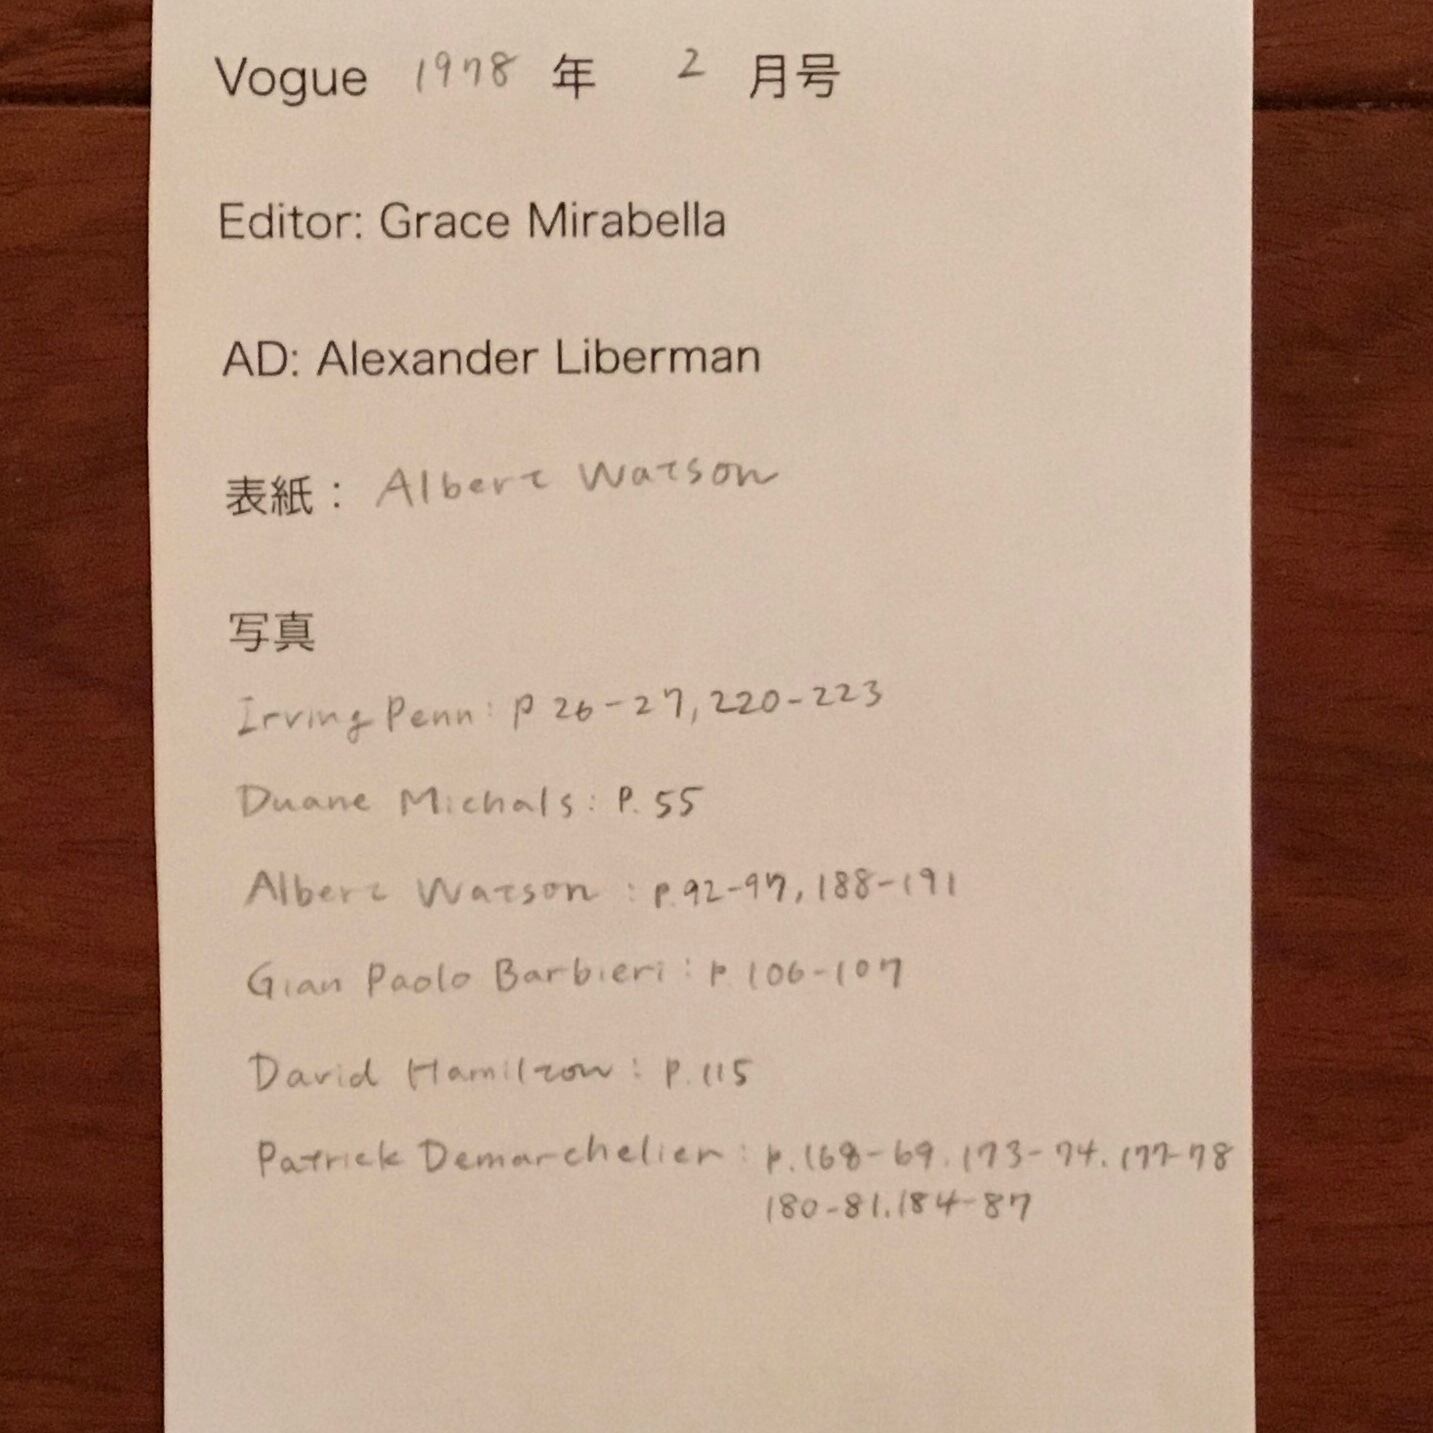 Vogue 1978 年 2 月号
Editor: Grace Mirabella
AD: Alexander Liberman
表紙： Albert Watson
写真
Irving Penn: p 26-27, 220-223
Duane Michals: P. 55
Albert Watson : p.92-97, 188-191
Gian Paolo Barbieri: p 106-107
David Hamilton: p.115
Patrick Demarchelier: p.168-69. 173-74. 177-78
180-81. 184-87